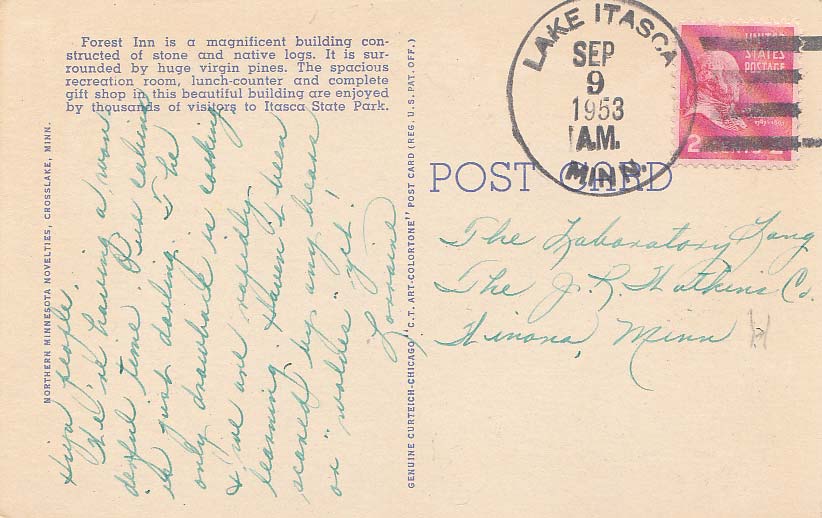 Forest Inn is a magnificent building con-
structed of stone and native logs. It is sur-
rounded by huge virgin pines. The spacious
recreation room, lunch-counter and complete
gift shop in this beautiful building are enjoyed
by thousands of visitors to Itasca State Park.
NORTHERN MINNESOTA NOVELTIES, CROSSLAKE, MINN.
Hiya people,
We're having a won-
derful time. Our cabin
is just darling. The
only drawback is cooking
& we are rapidly
learning. Haven't been
scared by any bears
or "wolves" yet!
Lorraine
GENUINE CURTEICH-CHICAGO "C.T. ART-COLORTONE" POST CARD (REG. U.S. PAT. OFF.)
POST CARD
LAKE ITASCA
SEP
9
1953
A.M.
MINN.
UNITED
STATES
POSTAGE
2
The Laboratory Gang
The J. R. Watkins Co.
Winona, Minn